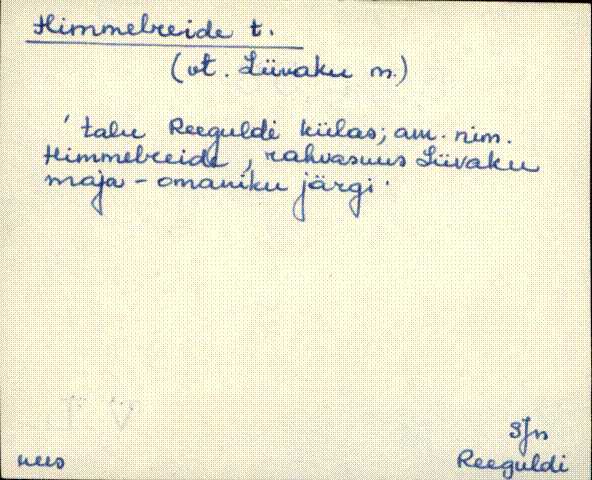 Himmelreide t.
(vt. Liivaku m.)
' talu Reeguldi külas; am. nim.
Himmelreide, rahvasuus Liivaku
maja - omaniku järgi.
Sjn
uus Reeguldi